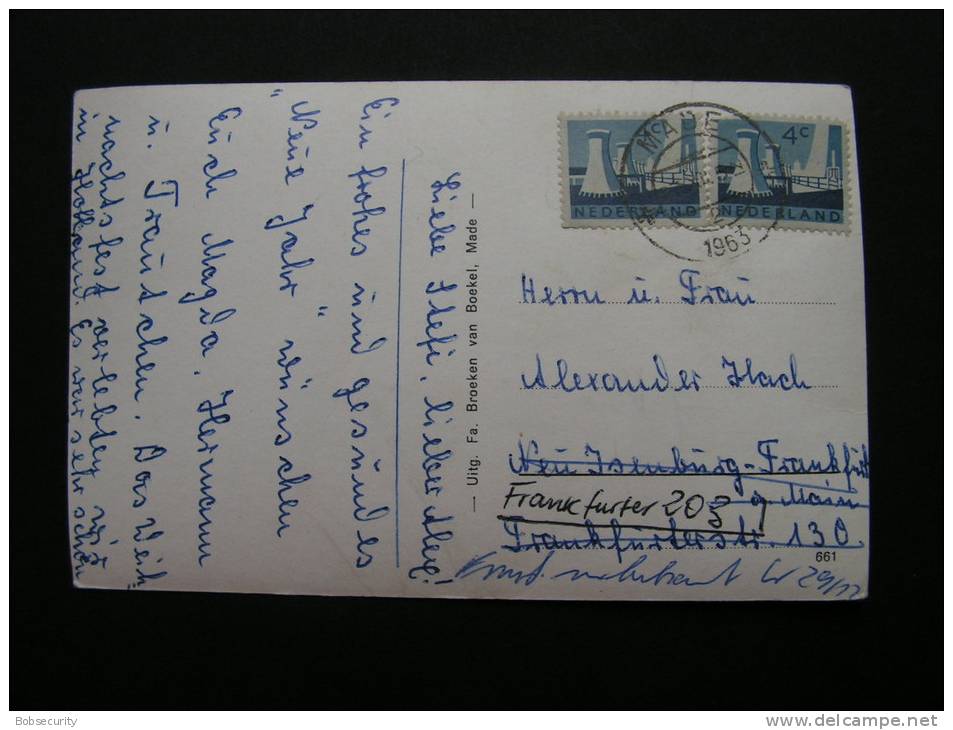 Liebe Stefi, lieber Alex!
Ein frohes und gesundes
"Neue Jahr" wünschen
Euch Magda, Hermann
u. Trautchen. Das Weih-
nachtsfest verlebten wir
in Holland. Es war sehr schön
— Uitg. Fa. Broeken van Boekel, Made —
MADE
1963
4c
NEDERLAND
NEDERLAND
Herrn u. Frau
Alexander Flach
Neu Isenburg-Frankfurt
a. Main
Frankfurter 203
Frankfurterstr. 130.
661
29/12
Bobsecurity
delcampe.net